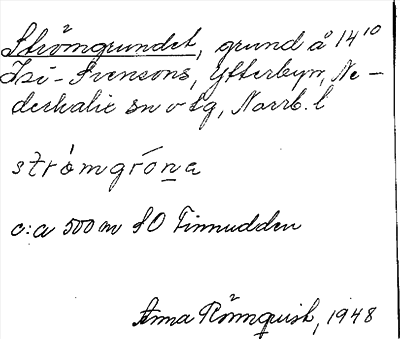 Strömgrundet, grund å 14¹⁰
Isi-Svensons, Ytterbyn, Ne-
derkalix sn o tg, Norrb. l
strömgróna
c:a 500 m SO Finnudden
Anna Rönnquist, 1948